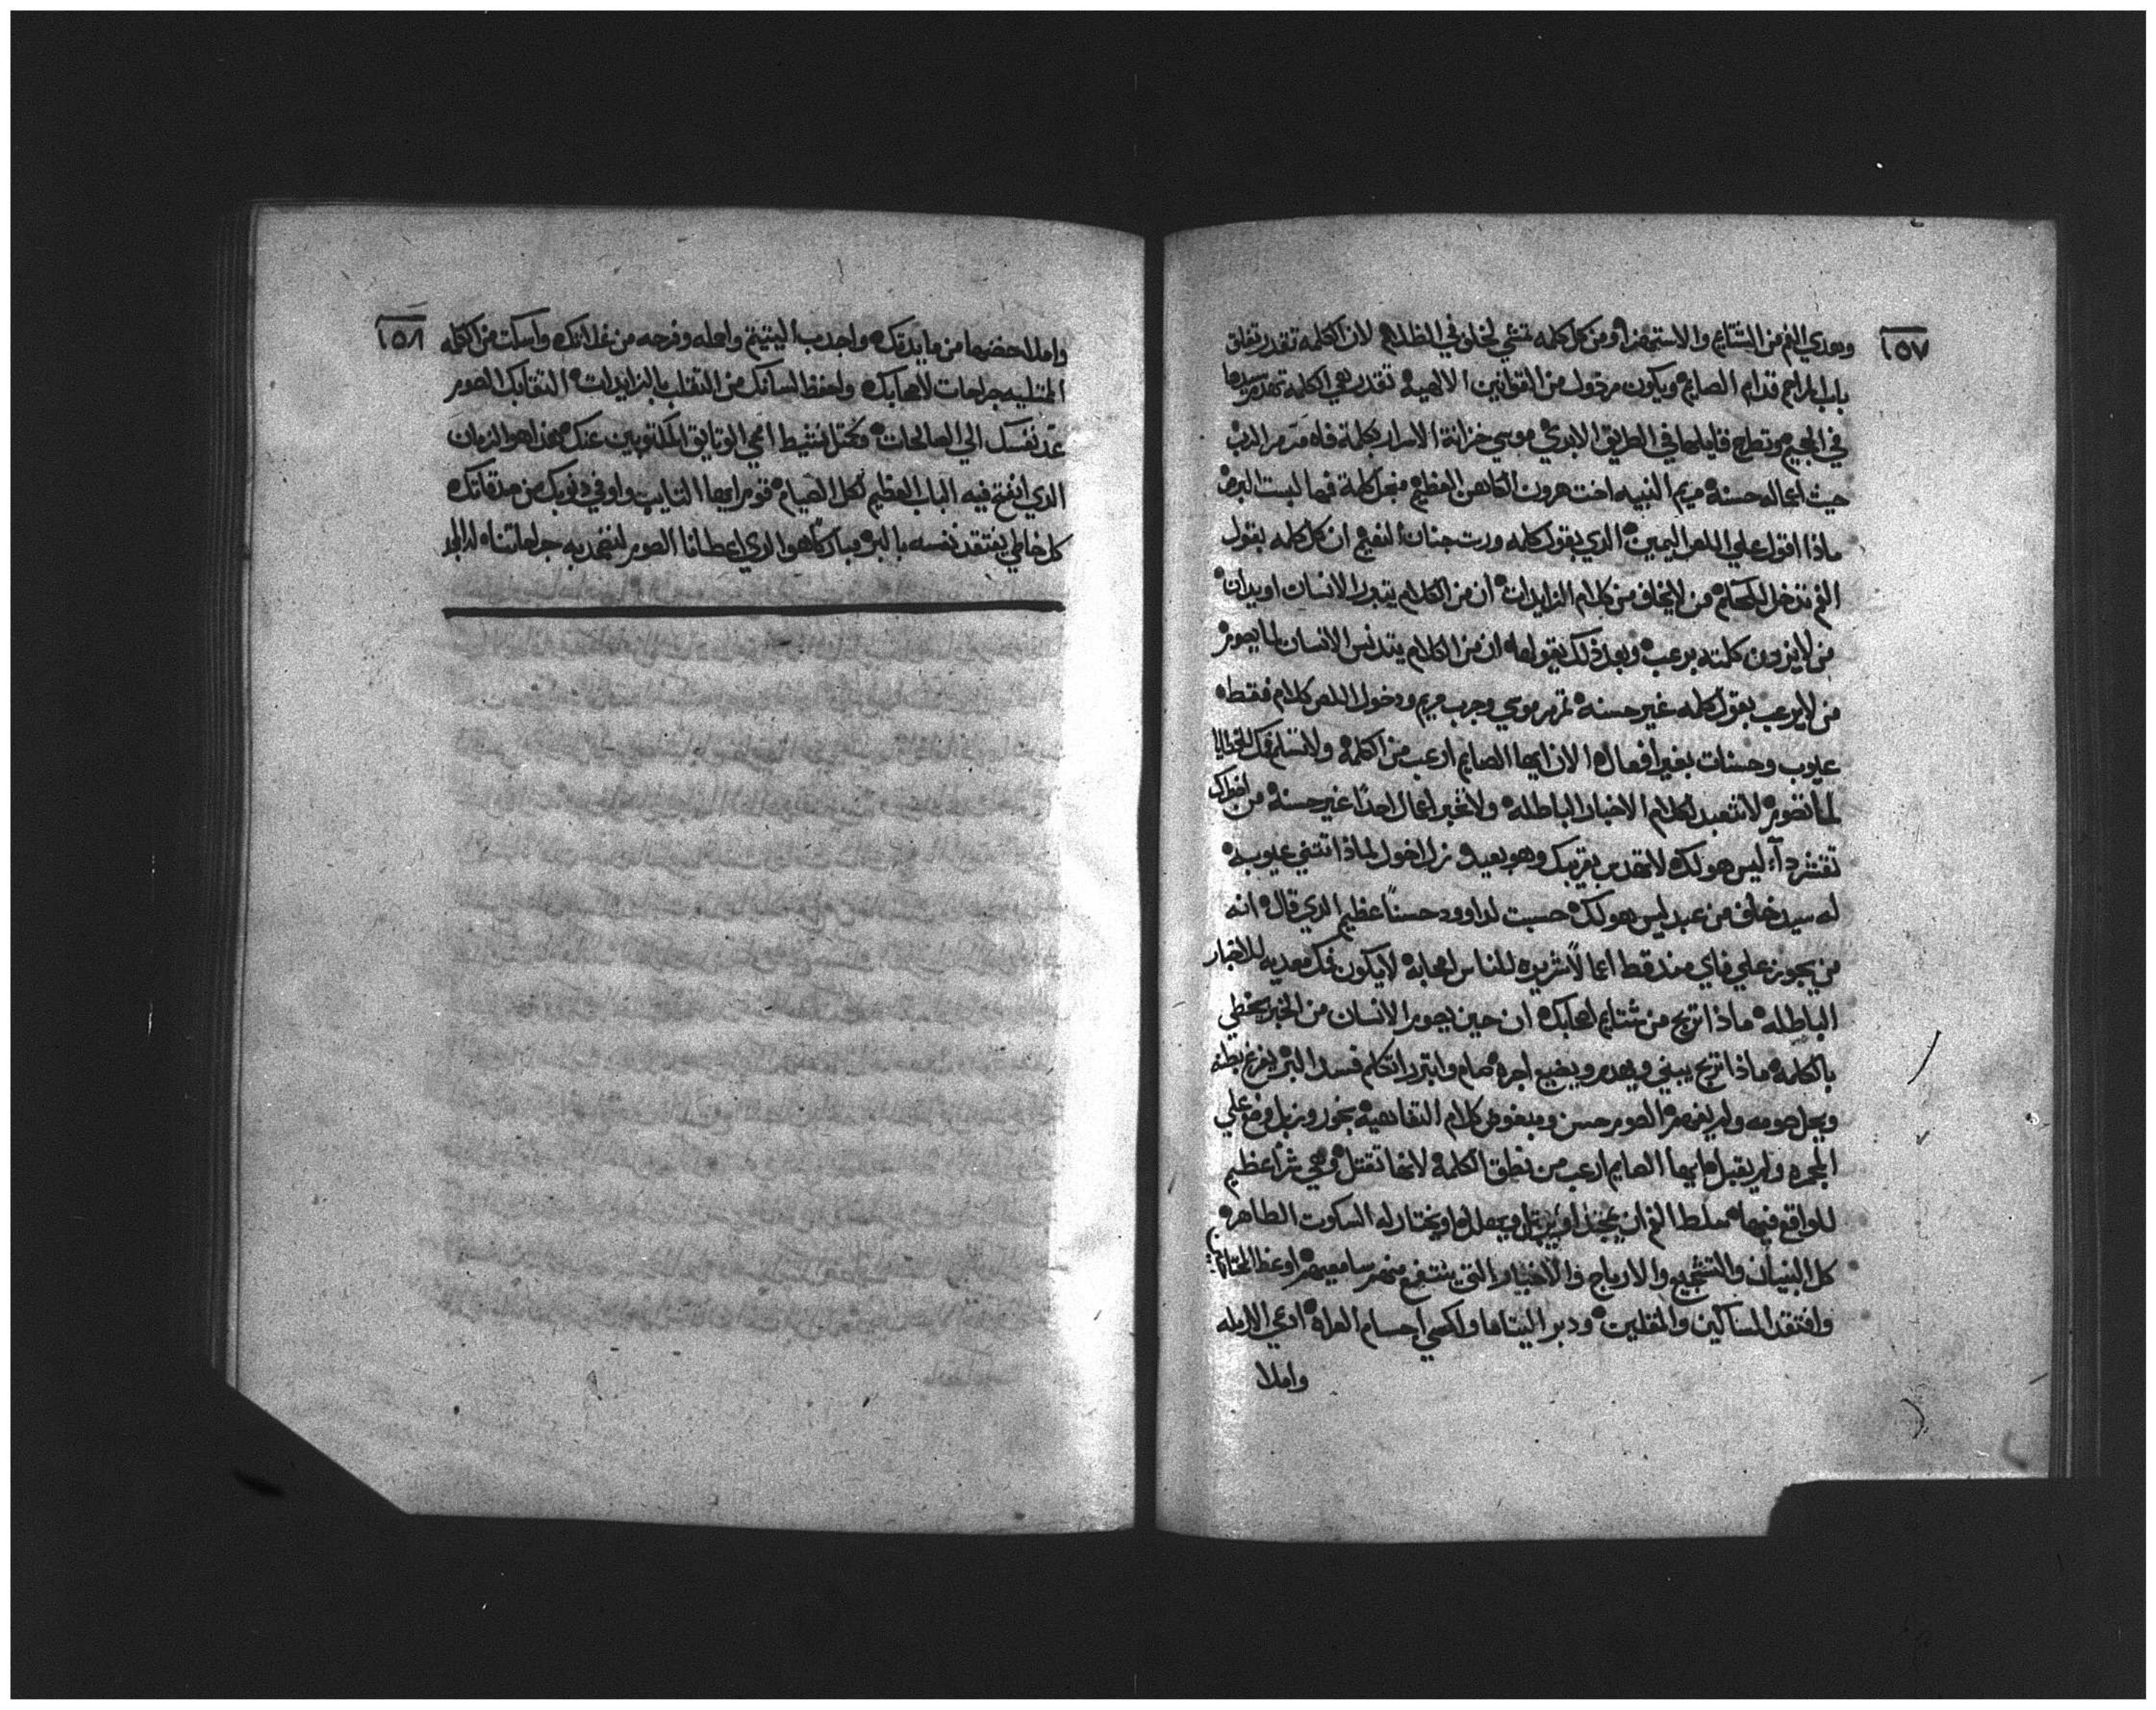 ١٥٧
ويهدي الفم من الشتايم والاستهزا ومن كل كلمه تمشي لخلق في الظلام لان الكلمه تقدر تغلق
باب المراحم قدام الصايم ويكون مردول من القوانين الالهية تقدر هي الكلمه تهدم سيدها
في الجحيم وتطرح قايلها في الطريق الابدي موسي خزانة الاسرار بكلمة فاه تمرمر الرب
حيث اعماله حسنة مريم النبيه اخت هرون الكاهن العظيم من اجل كلمة فمها لبست البرص
ماذا اقول علي اللص اليمين الذي بقول كلمه ورت جنات النعيم ان كل كلمه بقول
الفم تدخل للحكم من لا يخاف من كلام الزايدات ان من الكلام يتبرر الانسان او يدان
من لا يزون كلمته برعب وبعد ذلك يقولها ان من الكلام يتدنس الانسان لما يصوم
من لا يرعب بقول كلمه غير حسنه تمرمر موسي وجرب مريم ودخول اللص كلام فقط
عيوب وحسنات بغير افعال الان ايها الصايم ارعب من الكلمه ولا تسلم فمك للخطايا
لما تصوم لا تتعبد لكلام الاخبار الباطله ولا تخبر اعمال احدا غير حسنة من افواك
تفتش داء ليس هو لك لا تهدس بقريبك وهو بعيد نزل اخول لماذا تتني عيوبه
له سيد خلف من عبد ليس هو لك حسبت لداوود حسنا عظيم الذي قال انه
من يجوز علي فاي منه قط اعمالا شريره للناس اصحابه لا يكون فمك معديه للاخبار
الباطله ماذا تربح من شتايم اصحابك ان حين يجوع الانسان من الخبز يخطي
بالكلمه ماذا تربح يبني ويهدم ويضيع اجره صام وابتدا تكلم فسد البر يفرغ بطنه
ويحل صومه ولم يفهم الصوم حسن ومبغوض كلام النقايص بخور وزبل وضع علي
المجمره ولم يقبل ايها الصايم ارعب من نطق الكلمة لانها تقتل وهي شرا عظيم
للواقع فيها سلط الفم ان يمجد او يرتل او يصلي او يختار له السكوت الطاهر
كل البنيان والتشجيع والارباح والاخبار التي ينتفع منهم سامعيهم اوعظ المحتاجين
وافتقد المساكين والمقلين ودبر اليتاما واكسي اجسام العراه ادعي الارمله
واملا
١٥٨
واملا حضنها من مايدتك واجدب اليتيم واعله وفرحه من غلاتك واسكت من الكلمه
الممتليه جراحات لاصحابك واحفظ لسانك من التقلب بالزايدات التقابك الصوم
عد نفسك الي الصالحات وكحتل نشيط امحي الوتايق المكتوبين عنك هذا هو الزمان
الذي انفتح فيه الباب العظيم لكل الصيام قوم ايها التايب واوفي دنوبك من صدقاتك
كل خاطي يفتقد نفسه بالبر مباركا هو الذي اعطانا الصوم لنضمد به جراحاتنا له المجد